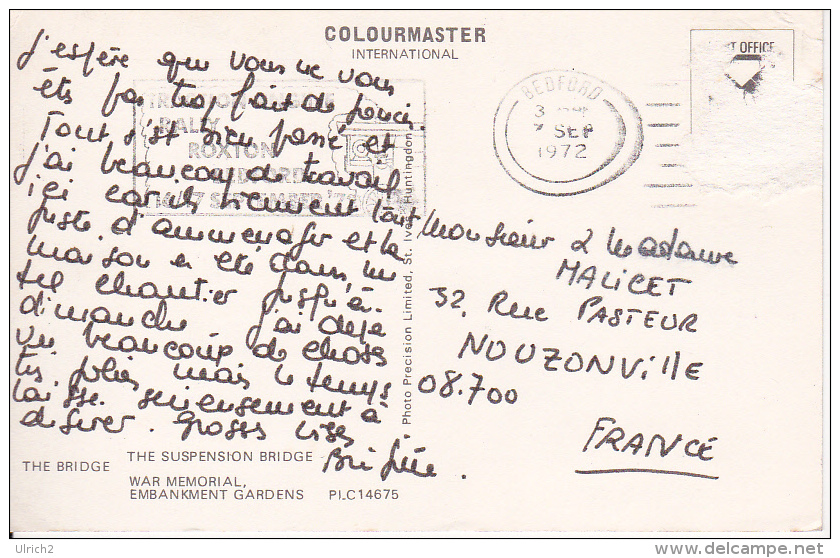 COLOURMASTER
INTERNATIONAL
j'espère que vous ne vous
êts pas trop fait de soucis.
Tout s'est bien passé et
j'ai beaucoup de travail
ici car ils viennent tout
juste d'ammenager et la
maison a été dans un
tel chantier jusqu'à
dimanche j'ai déjà
vu beaucoup de choses
très jolies mais le temps
laisse serieusement à
désirer. Grosses bises
Brigitte.
THE BRIDGE
THE SUSPENSION BRIDGE
WAR MEMORIAL,
EMBANKMENT GARDENS PLC14675
Photo Precision Limited, St. Ives, Huntingdon
RALLY
ROXTON
BEDFORD
SEPTEMBER '72
BEDFORD
7 SEP
1972
POST OFFICE
Monsieur & Madame
MALICET
32, Rue PASTEUR
NOUZONVILLE
08.700
FRANCE
Ulrich2